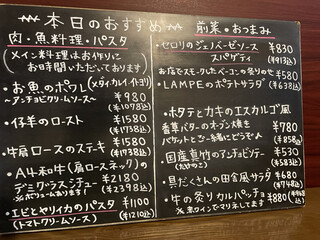 本日のおすすめ
肉・魚料理・パスタ
(メイン料理はお作りに
お時間いただいております)
・お魚のポワレ(メダイ、カレイ、トヨリ)
～アンチョビクリームソース～
¥980
(¥1078込)
・仔羊のロースト ¥1580
(¥1738込)
・牛肩ロースのステーキ ¥1580
(¥1738込)
・A4和牛(肩ロース・テール)の
デミグラスシチュー ¥2180
(¥2398込)
・エビとヤリイカのパスタ ¥1100
(トマトクリームソース) (¥1210込)
前菜・おつまみ
・セロリのジェノバーゼソース ¥830
スパゲティ (¥913込)
お店でスモークしたベーコンの香りのせ ¥580
・LAMPEのポテトサラダ (¥638込)
・ホタテとカキのエスカルゴ風
香草バターのオーブン焼き ¥780
バケットとご一緒にどうぞ (¥858込)
・国産真竹のアンチョビソテー ¥530
(たけのこ) (¥583込)
・具だくさんの田舎風サラダ ¥680
(¥748込)
・牛の炙りカルパッチョ ¥880
※赤ワインでマリネしてます